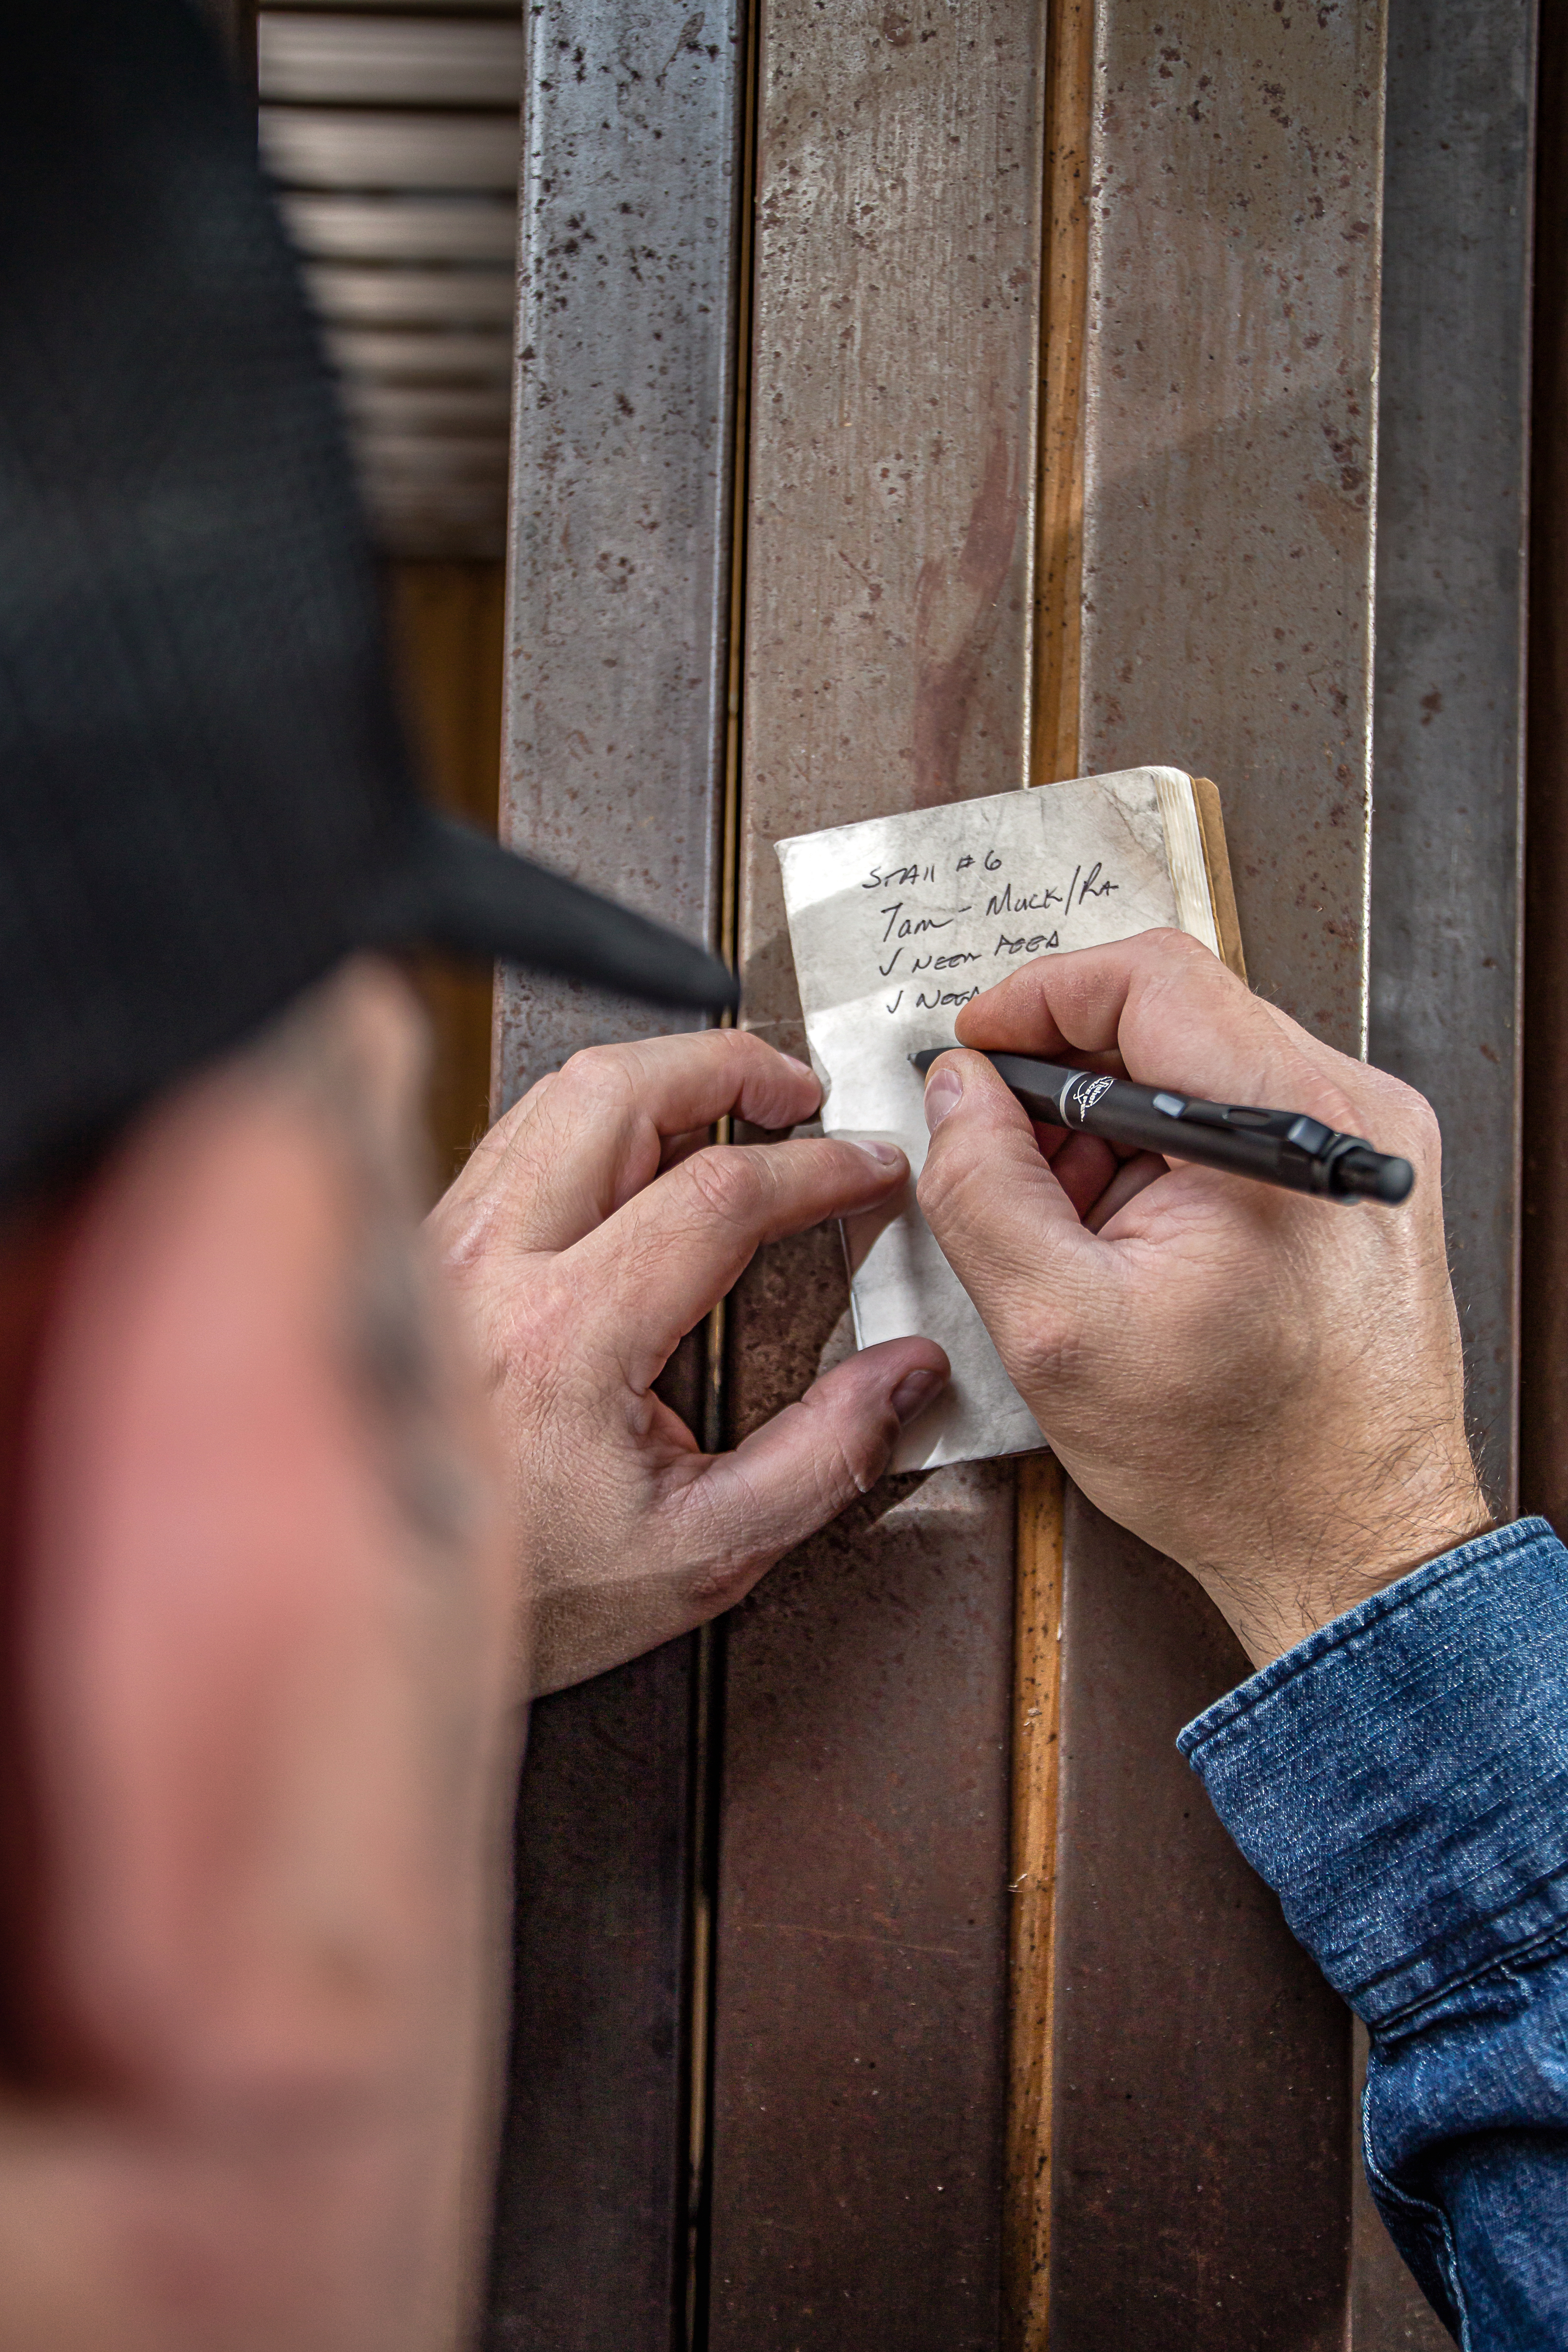 Stall #6
7am - Muck/Ra
✓ Need Feed
✓ Need